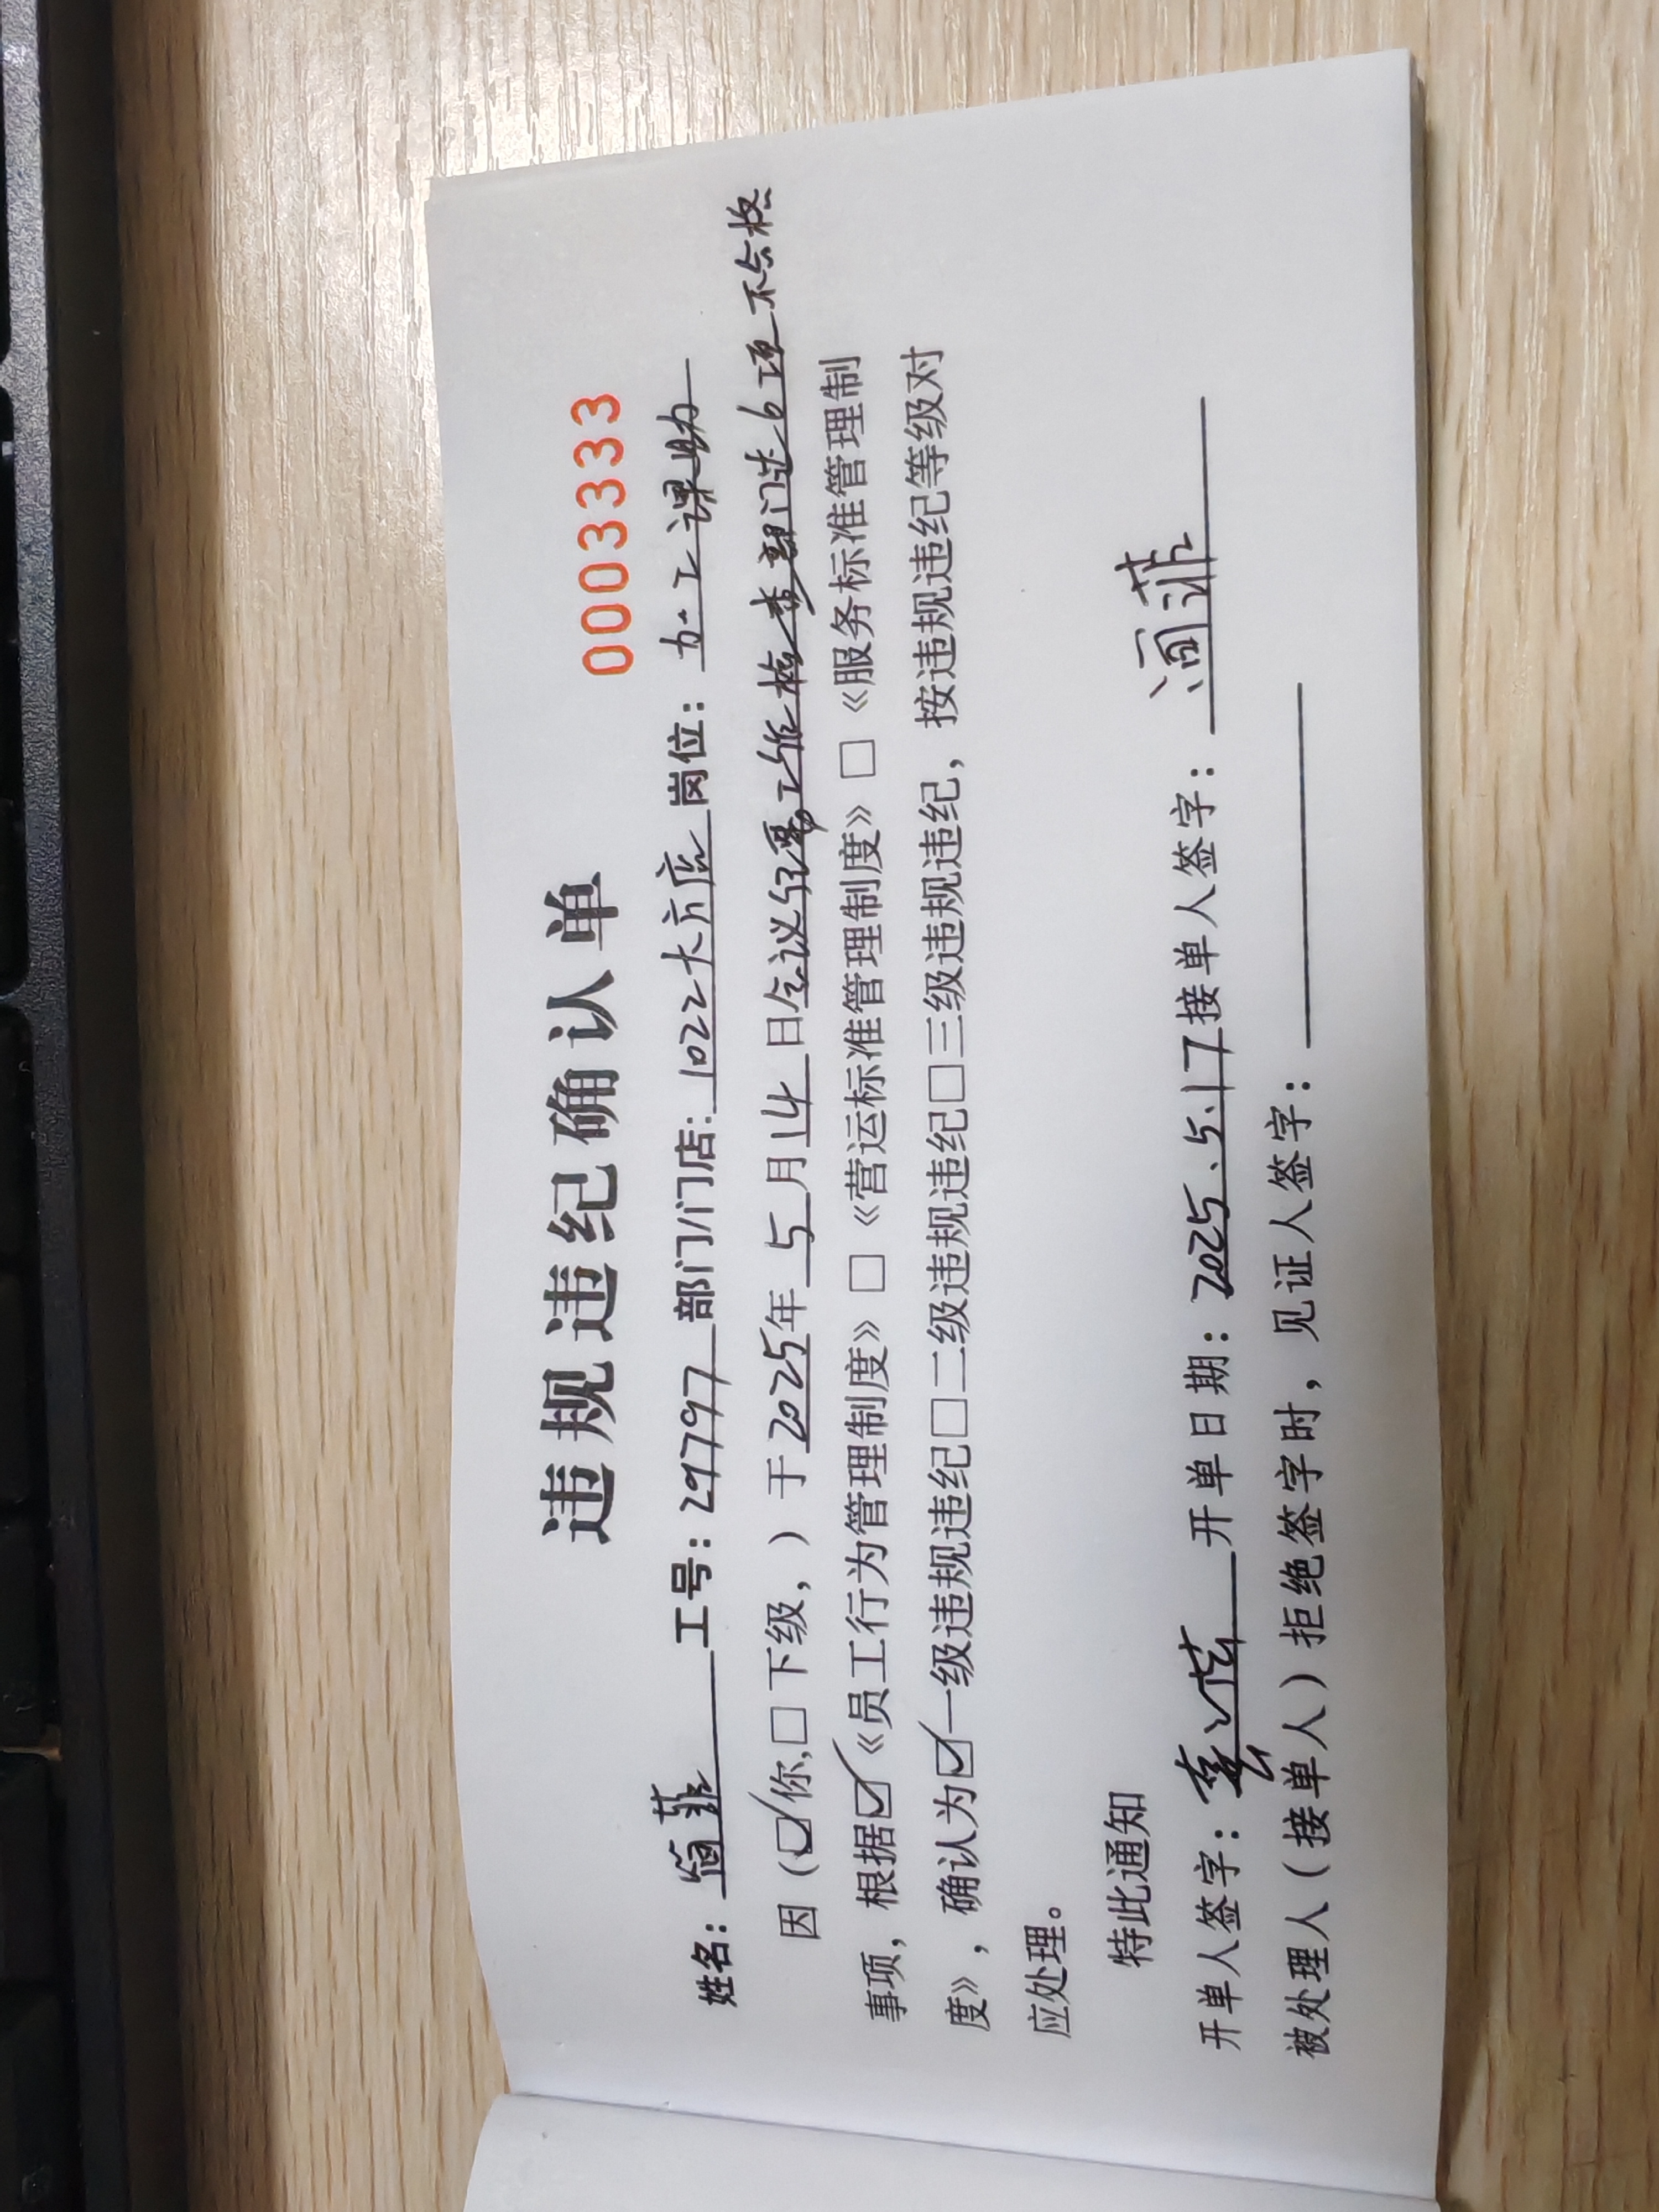 违规违纪确认单
0003333
姓名：简菲 工号：29797 部门/门店：1022大方店 岗位：加工课助
因（☑你,□下级，）于2025年5月14日会议纪要工作检查部门达6项不合格
事项，根据☑《员工行为管理制度》□《营运标准管理制度》□《服务标准管理制
度》，确认为☑一级违规违纪□二级违规违纪□三级违规违纪，按违规违纪等级对
应处理。
特此通知
开单人签字： 开单日期：2025.5.17 接单人签字：简菲
被处理人（接单人）拒绝签字时，见证人签字：